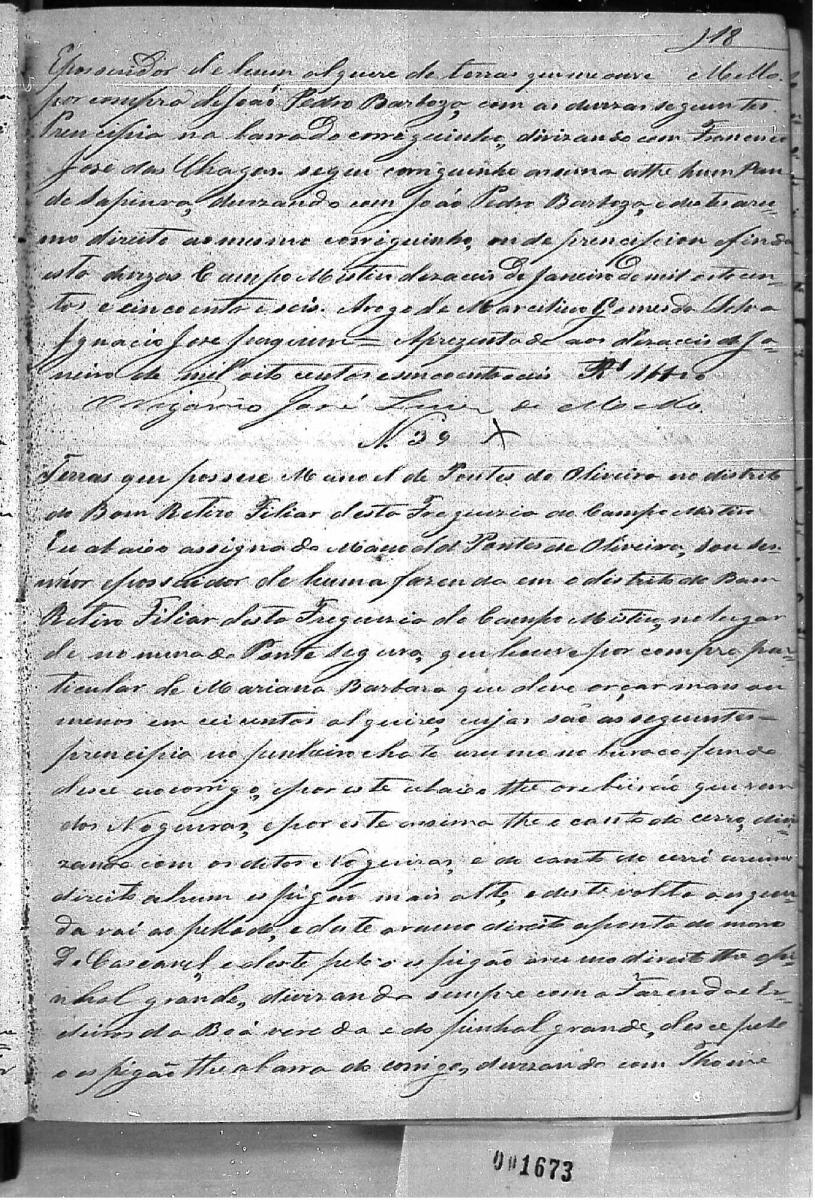 118
E possuidor de hum alquere de terras que me ouve Mello
por compra de João Pedro Barboza, com as divizas seguintes
Principia na barra do correguinho, divizando com Francisco
José das Chagas segue correguinho assima athe hum Pau
de Sapeuva, divizando com João Pedro Barboza, e deste aru-
mo direito ao mesmo correguinho, onde principiou e finda
esta divizas Campo Mistico dezaceis de Janeiro de mil oito cen-
tos e cincoenta e seis. Arogo de Marcelino Gomes da Silva
Ignacio José Joaquim = Aprezentado aos dezaceis de Ja-
neiro de mil oito centos e cincoenta e seis Rs
O Vigario José Luiz de
N. 39 X
Terras que possue Manoel de Pontes de Oliveira no distrito
do Bom Retiro Filiar desta Freguezia do Campo Mistico
Eu abaico assignado Manoel de Pontes de Oliveira, sou se-
nhor e possuidor de huma fazenda em o distrito do Bom
Retiro Filiar desta Freguezia do Campo Mistico, no lugar
de nominado Ponte segura, que houve por compra par-
ticular de Mariana Barbara que deve orçar mais ou
menos em ceicentos alquires, cujas são as seguintes =
principia no pinheiro chato arumo no buraco fundo
desce ao corrigo, e por este abaico the o rebeirão que vem
dos Nogueiras, e por este assima the o canto do cerro, divi-
zando com os ditos Nogueiras, e do canto do cerro arumo
direito a hum espigão mais alto, e deste volta a esquer-
da vai ao pellado, e deste arumo direito a ponta do morro
do Cascavel, e deste pelo o espigão arumo direito the o pi-
nhal grande, divizando sempre com a Fazenda e Er-
deiros da Boa vereda e do pinhal grande, desce pelo
o espigão the a barra do corrigo, divizando com Thome
001673